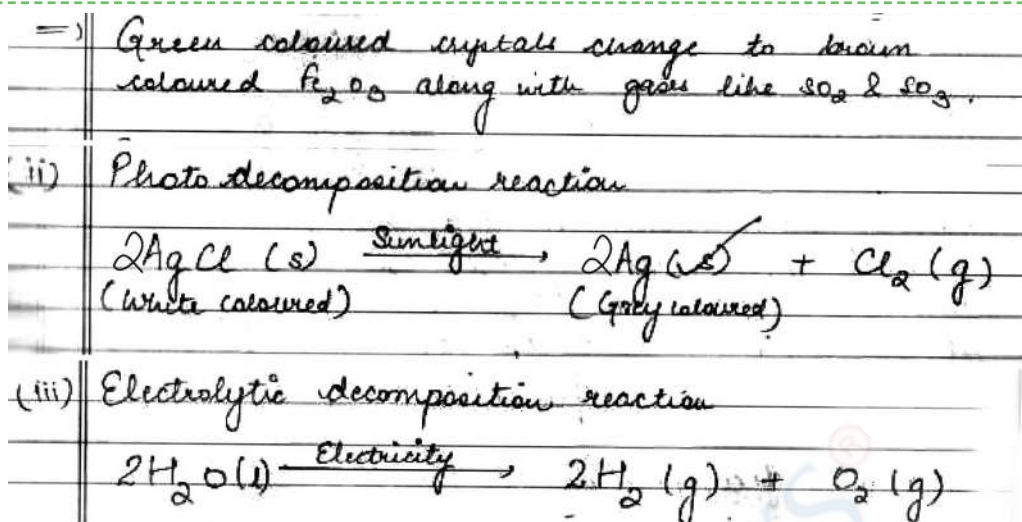 => Green coloured crystals change to brown
coloured Fe₂O₃ along with gases like SO₂ & SO₃.
(ii) Photo decomposition reaction
2AgCl (s) Sunlight → 2Ag (s) + Cl₂ (g)
(White coloured) (Grey coloured)
(iii) Electrolytic decomposition reaction
2H₂O(l) Electricity → 2H₂ (g) + O₂ (g)